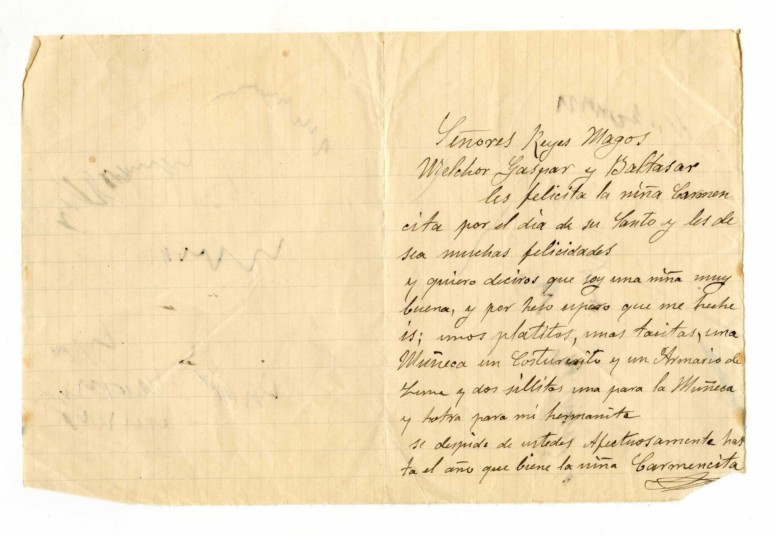 Señores Reyes Magos
Melchor Gaspar y Baltasar
les felicita la niña Carmen
cita por el dia de su Santo y les de
sea muchas felicidades
y quiero deciros que soy una niña muy
buena, y por heso espero que me heche
is; unos platitos, unas tacitas, una
Muñeca un Costurerito y un Armario de
Luna y dos sillitas una para la Muñeca
y hotra para mi hermanita
se despide de ustedes Afectuosamente has
ta el año que biene la niña Carmencita